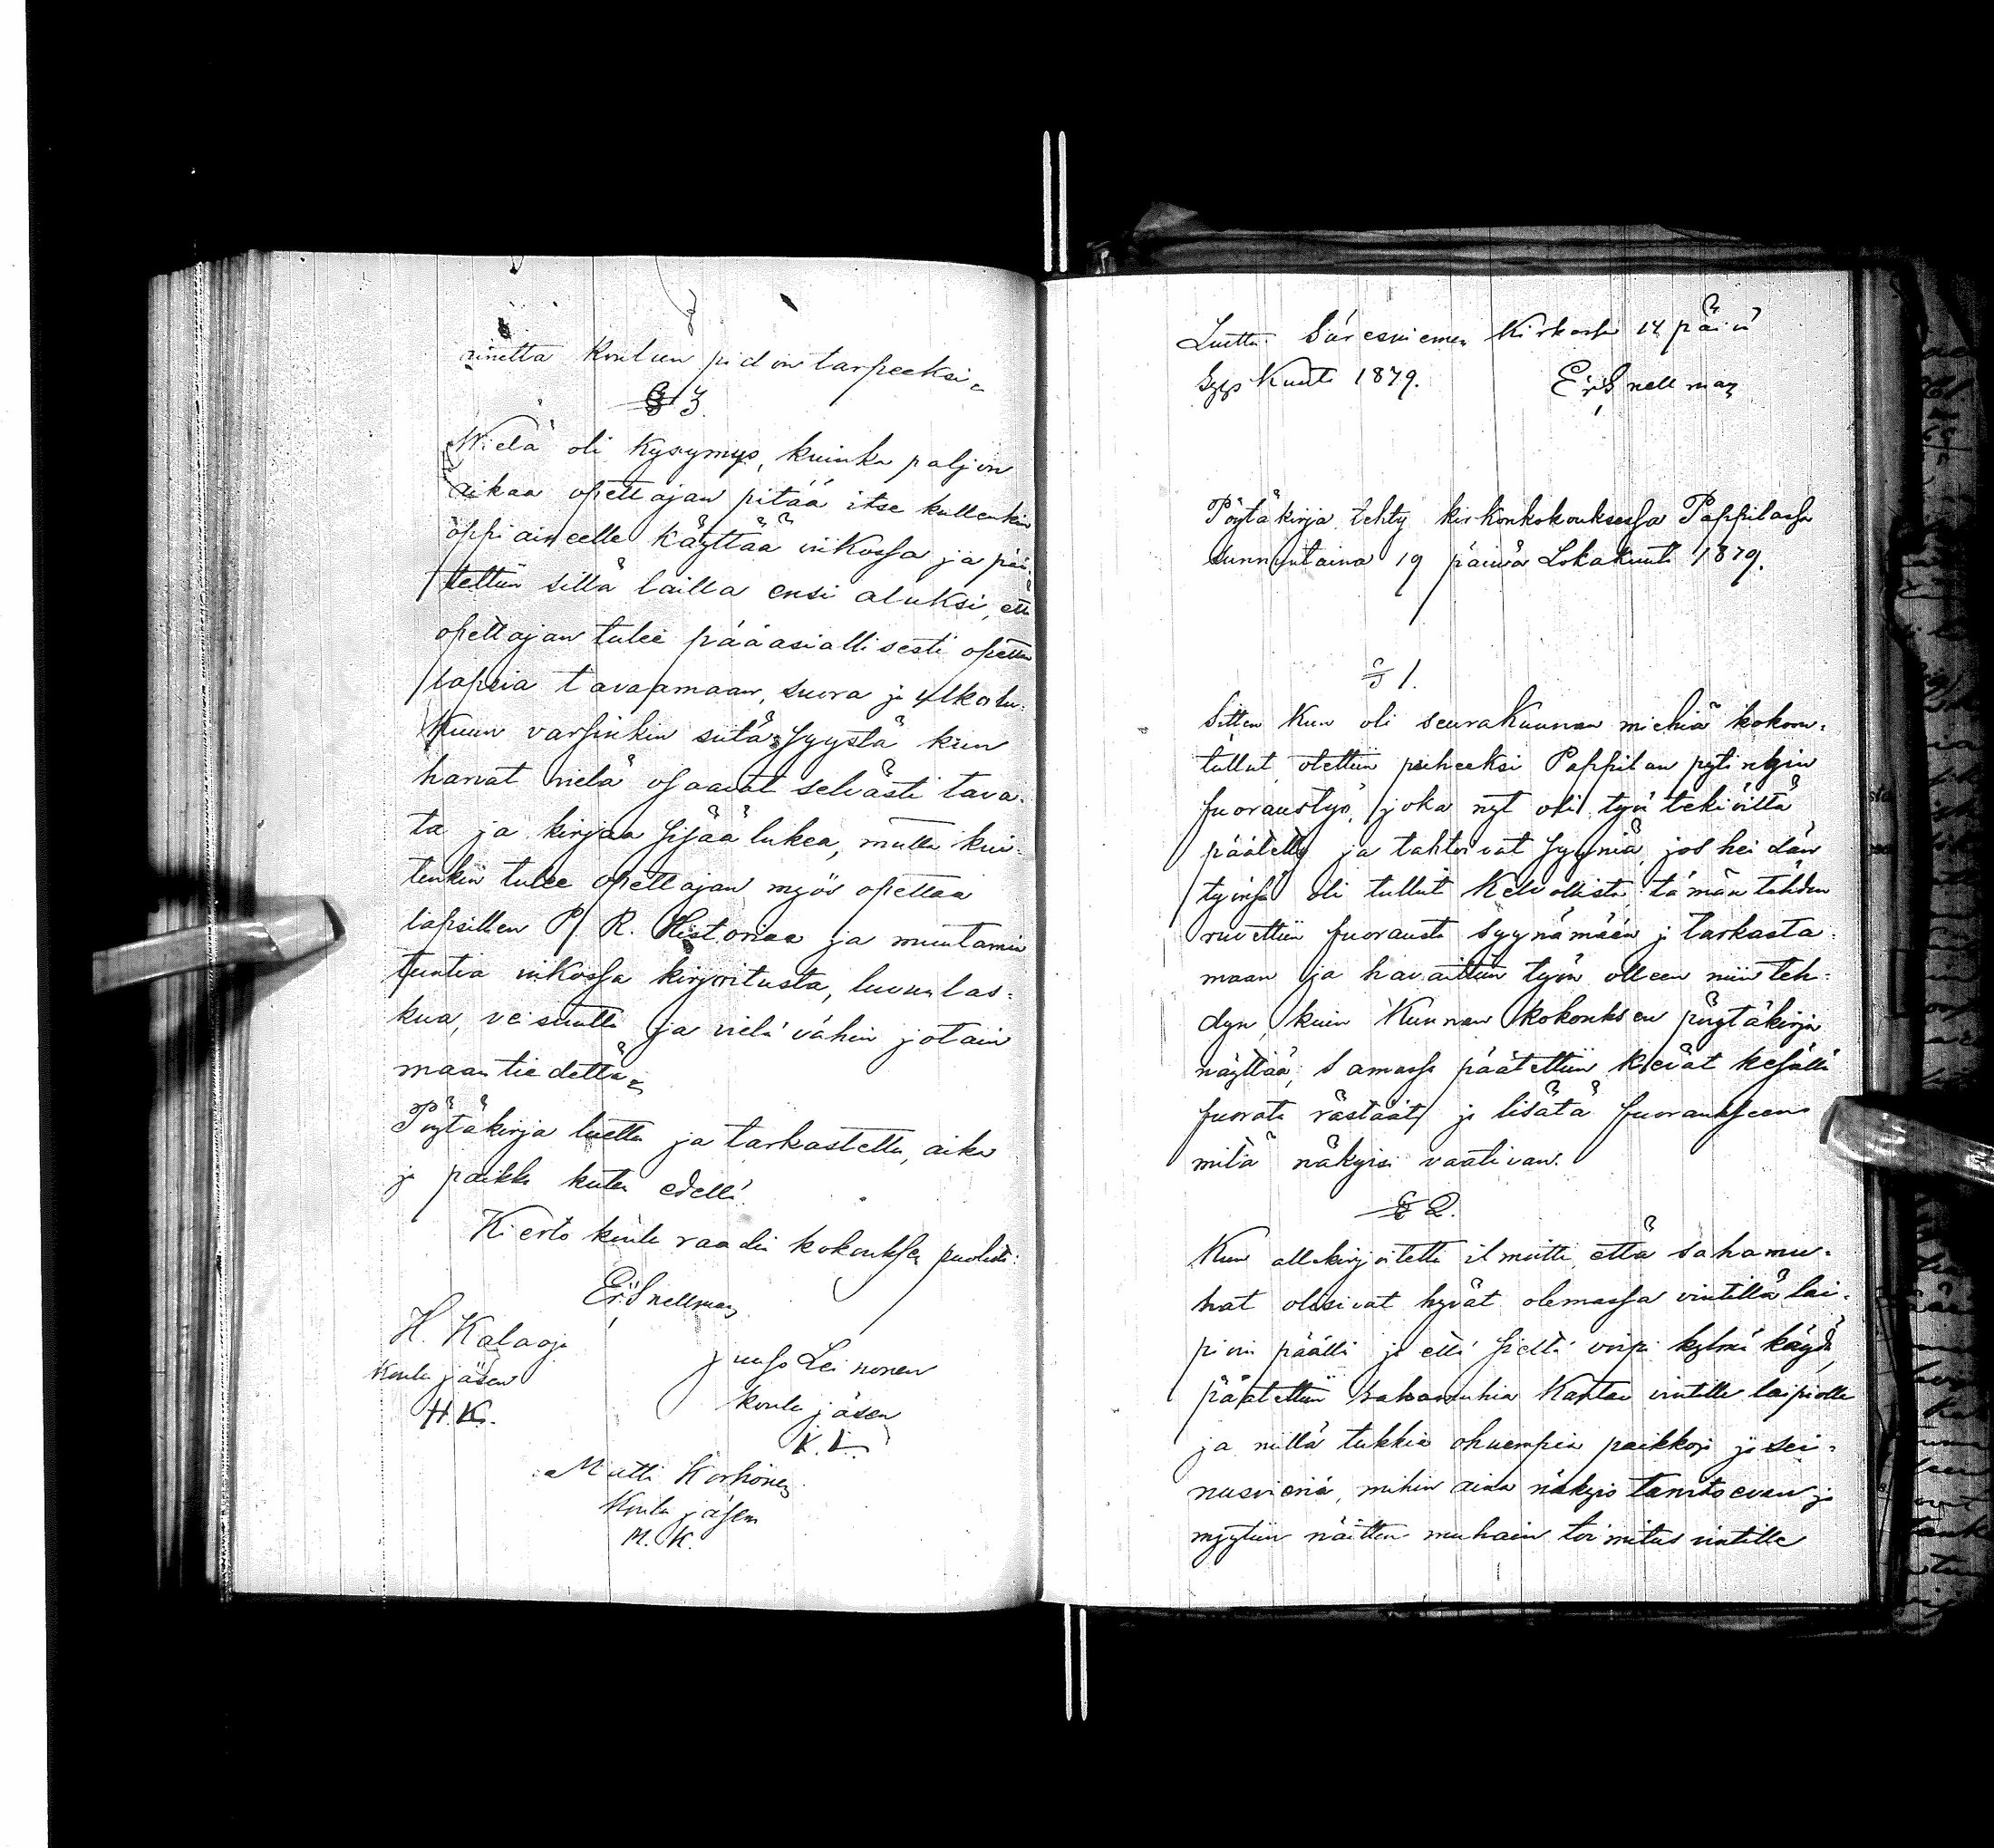 koulun pidon tarpeeksi
§ 3.
Wielä oli kysymys, kuinka paljon
aikaa opettajan pitää itse kullenkin
oppiaineelle käyttää viikossa ja pää-
tettiin sillä lailla ensi aluksi, että
opettajan tulee pääasiallisesti opettaa
lapsia tavaamaan, suora ja ulkolu-
kuun varsinkin siitä syystä kun
harvat vielä osaavat selvästi tava-
ta ja kirjaa sisää lukea, mutta kui-
tenkin tulee opettajan myös opettaa
lapsillen P. R. Historiaa ja muutamia
tuntia viikossa kirjoitusta, luvunlas-
kua, veisuutta ja vielä vähin jotain
maantiedettä
Pöytäkirja luettu ja tarkastettu, aika
ja paikka kuten edellä.
Kierto koulu raadin kokouksen puolesta:
Er: Snellman
H. Kalaoja
koulu jäsen
H.K.
Juuso Leinonen
koulu jäsen
K.L.
Matti Korhonen
koulu jäsen
M. K.
Luettu Säresniemen Kirkossa 14 päivä
Syyskuuta 1879. Er: Snellman
Pöytäkirja tehty kirkonkokouksessa Pappilassa
sunnuntaina 19 päivä Lokakuuta 1879.
§ 1.
Sitten kun oli seurakunnan miehiä kokoon-
tullut, otettiin puheeksi Pappilan pytingin
fuoraustyö, joka nyt oli työn tekiöiltä
päätetty ja tahtoivat syyniä, jos heidän
työnsä oli tullut kelvollista. tämän tähden
ruvettiin fuorausta syynämään ja tarkasta-
maan ja havaittiin työn olleen niin teh-
dyn, kuin Kunnan kokouksen pöytäkirja
näyttää; samassa päätettiin kevät kesällä
fuorata rästäät ja lisätä fuoraukseen
mitä näkyisi vaativan.
§ 2.
Kun allakirjoitettu ilmoitti, että sahamu-
hat olisivat hyvät olemassa vintillä lai-
pion päällä ja että sieltä voipi kylmä käydä,
päätettiin sahamuhia kantaa vintille laipiolle
ja niillä tukkia ohuempia paikkoja ja sei-
nusvieriä, mihin aina näkyis tarvitsevan ja
myytiin näitten muhain toimitus vintille